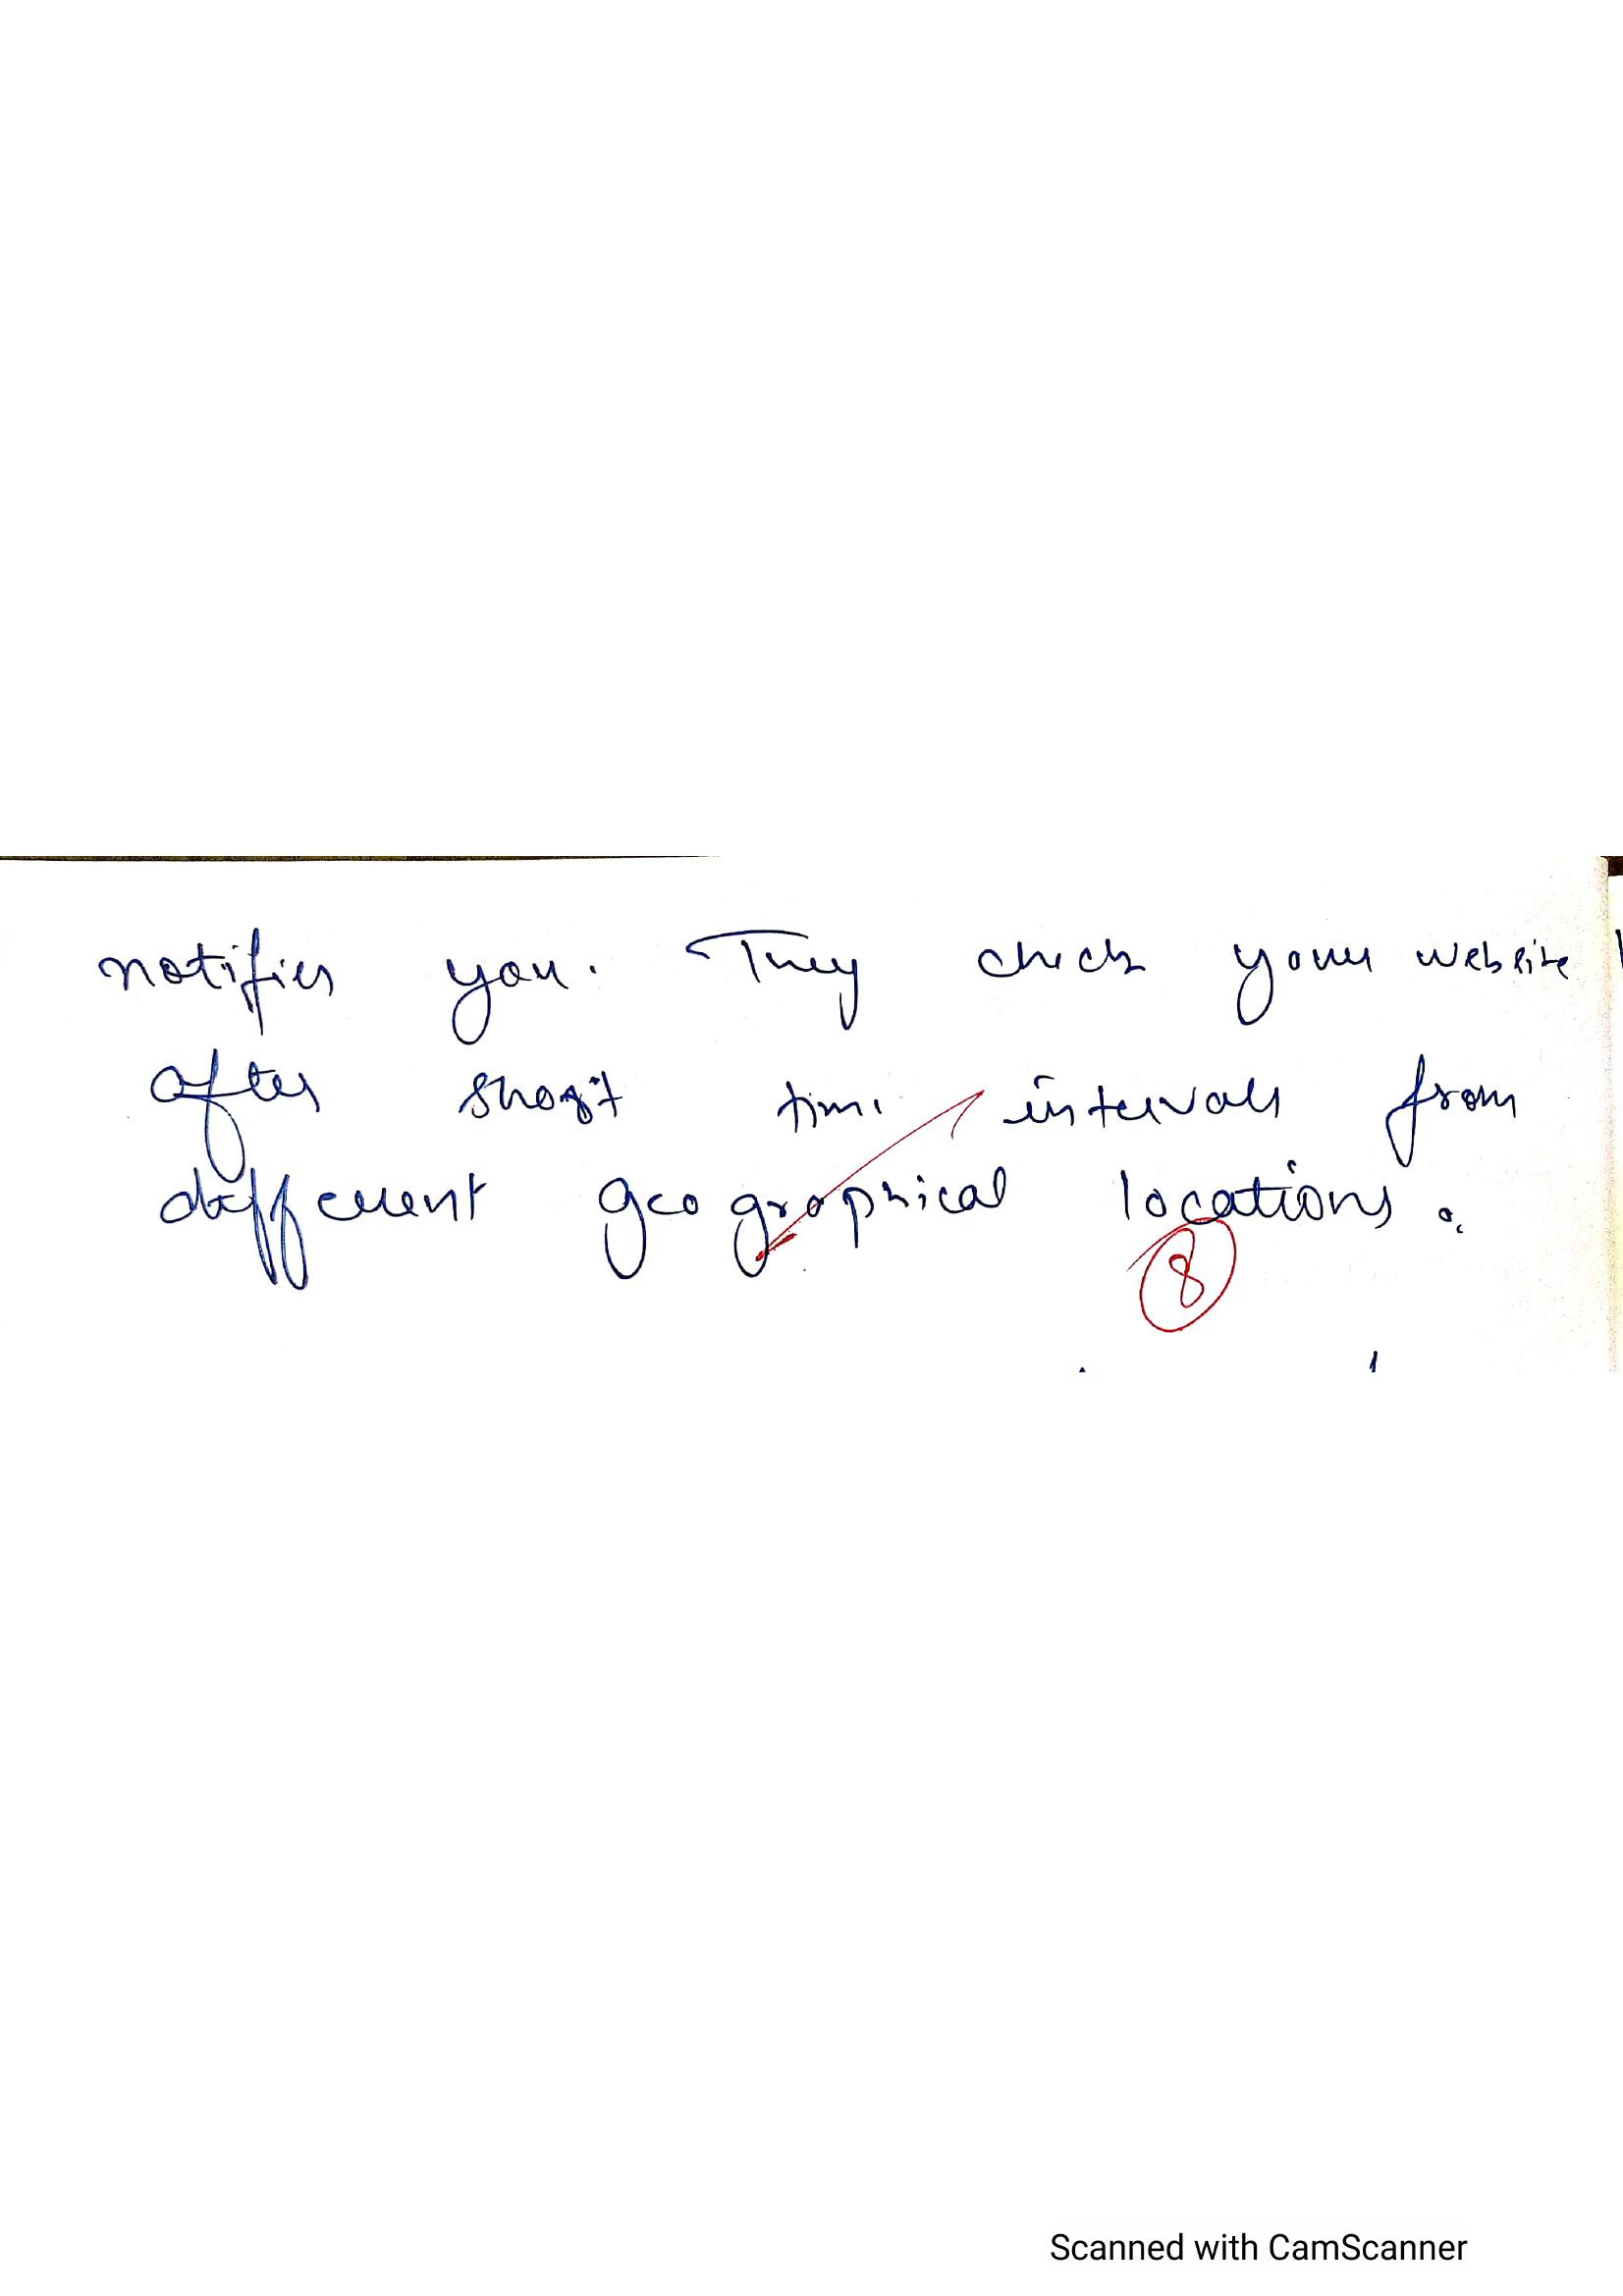 notifies you. They check your website
after short time intervals from
different geographical locations.
8
Scanned with CamScanner